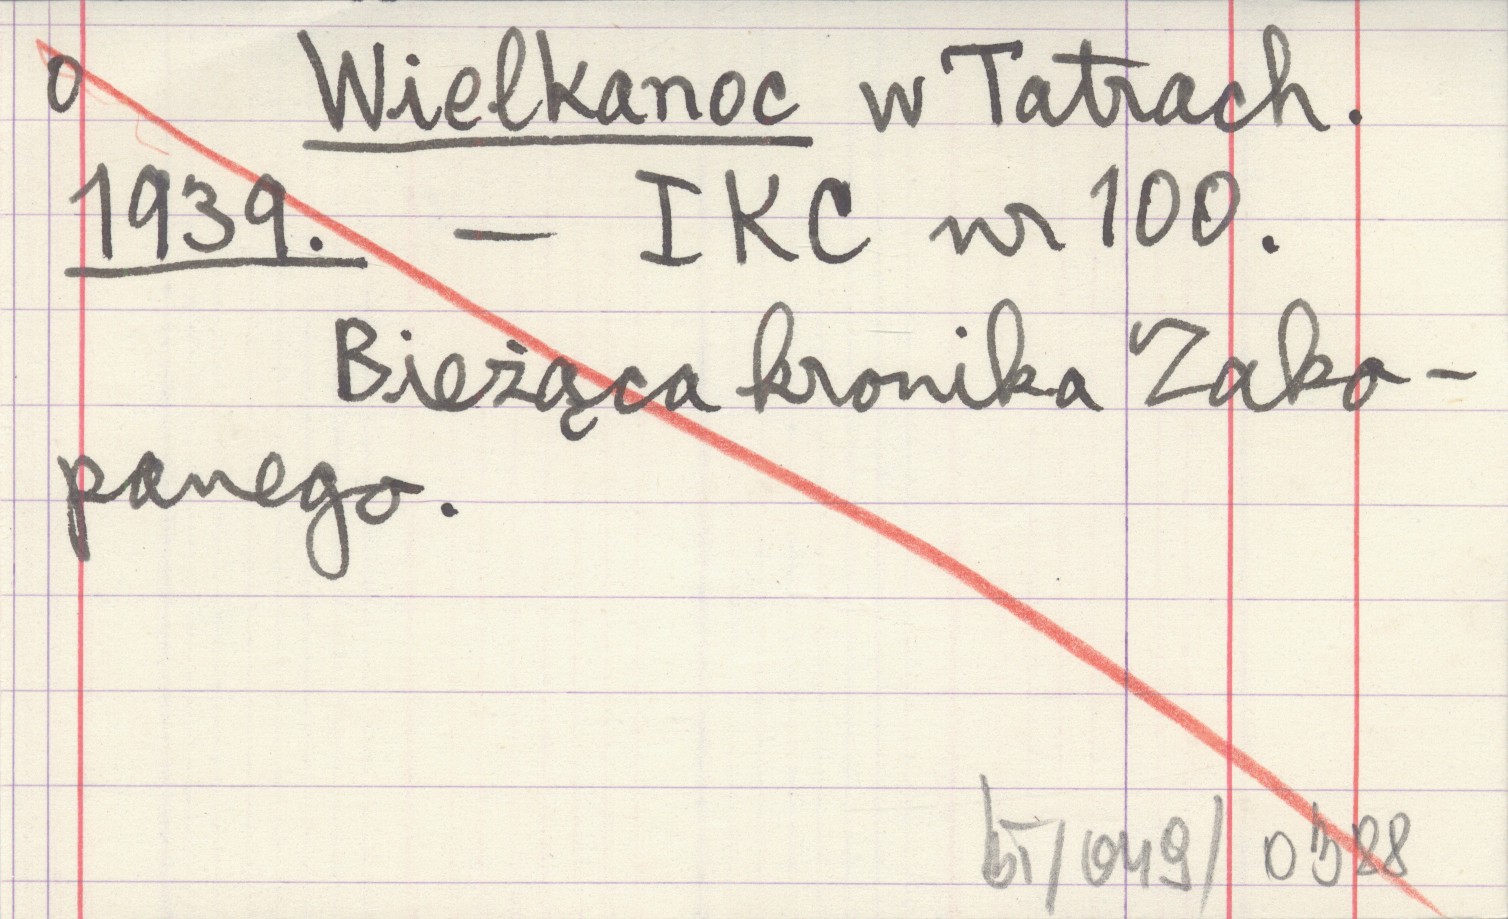 o Wielkanoc w Tatrach.
1939. — IKC nr 100.
Bieżąca kronika Zako-
panego.
/049/ 0388